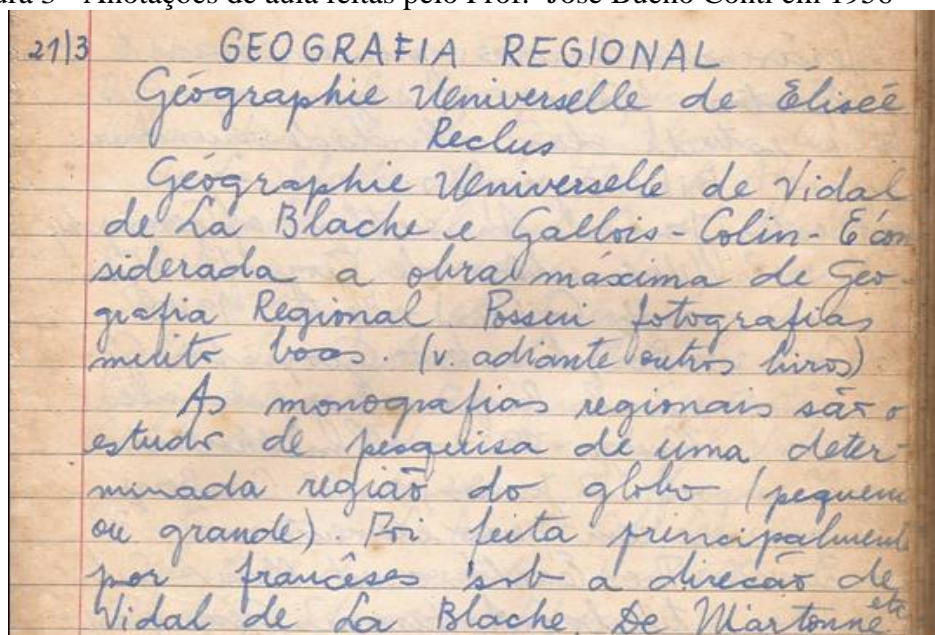 ura 3 - Anotações de aula feitas pelo Prof. José Bueno Conti em 1956
21/3 GEOGRAFIA REGIONAL
Géographie Universelle de Éliseé
Reclus
Géographie Universelle de Vidal
de La Blache e Gallois - Colin - É con
siderada a obra máxima de Geo-
grafia Regional. Possui fotografias
muito boas. (v. adiante outros livros)
As monografias regionais são o
estudo de pesquisa de uma deter-
minada região do globo (pequena
ou grande). Foi feita principalmente
por francêses sob a direcão de
Vidal de La Blache, De Martonne etc